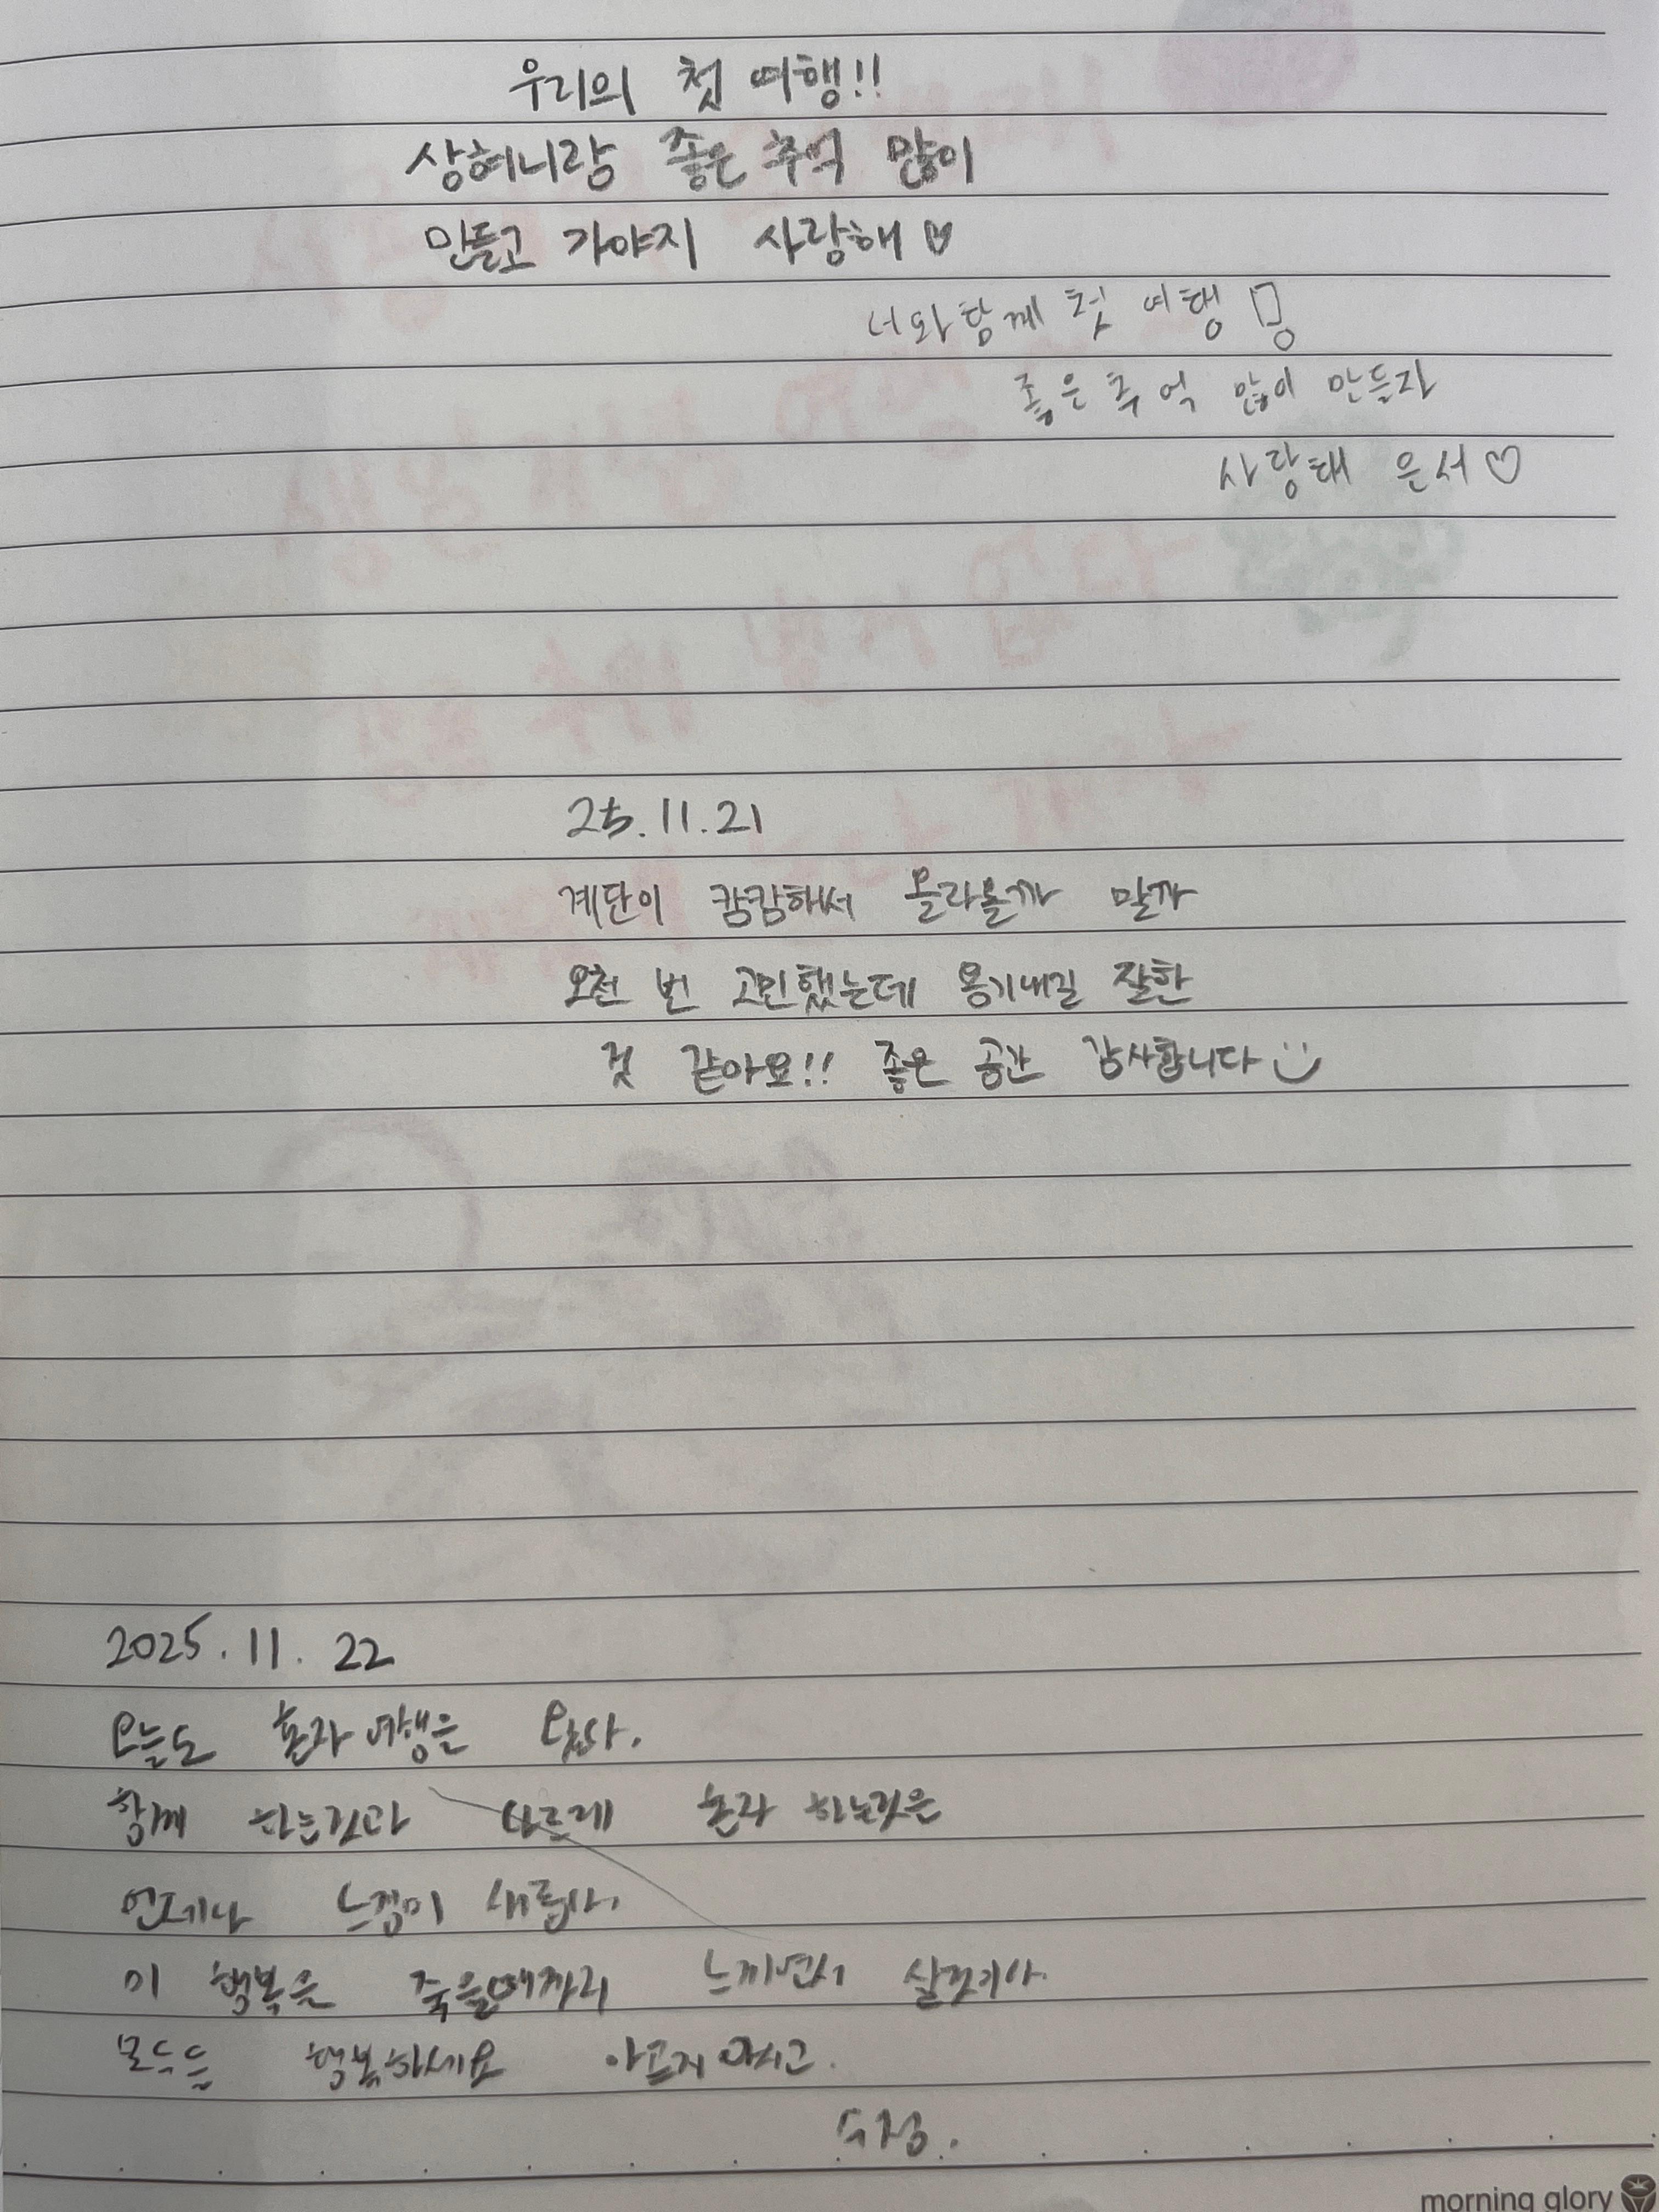 우리의 첫 여행!!
상혀니랑 좋은 추억 많이
만들고 가야지 사랑해♡
너와 함께 첫 여행
좋은 추억 많이 만들자
사랑해 은서♡
25.11.21
계단이 캄캄해서 올라올까 말까
오천 번 고민했는데 용기내길 잘한
것 같아요!! 좋은 공간 감사합니다
2025.11.22
오늘도 혼자 여행을 왔다.
함께 하는것과 다르게 혼자 하는것은
언제나 느낌이 새롭다.
이 행복을 죽을때까지 느끼면서 살것이다.
모두들 행복하세요 아프지마시고.
수정.
morning glory